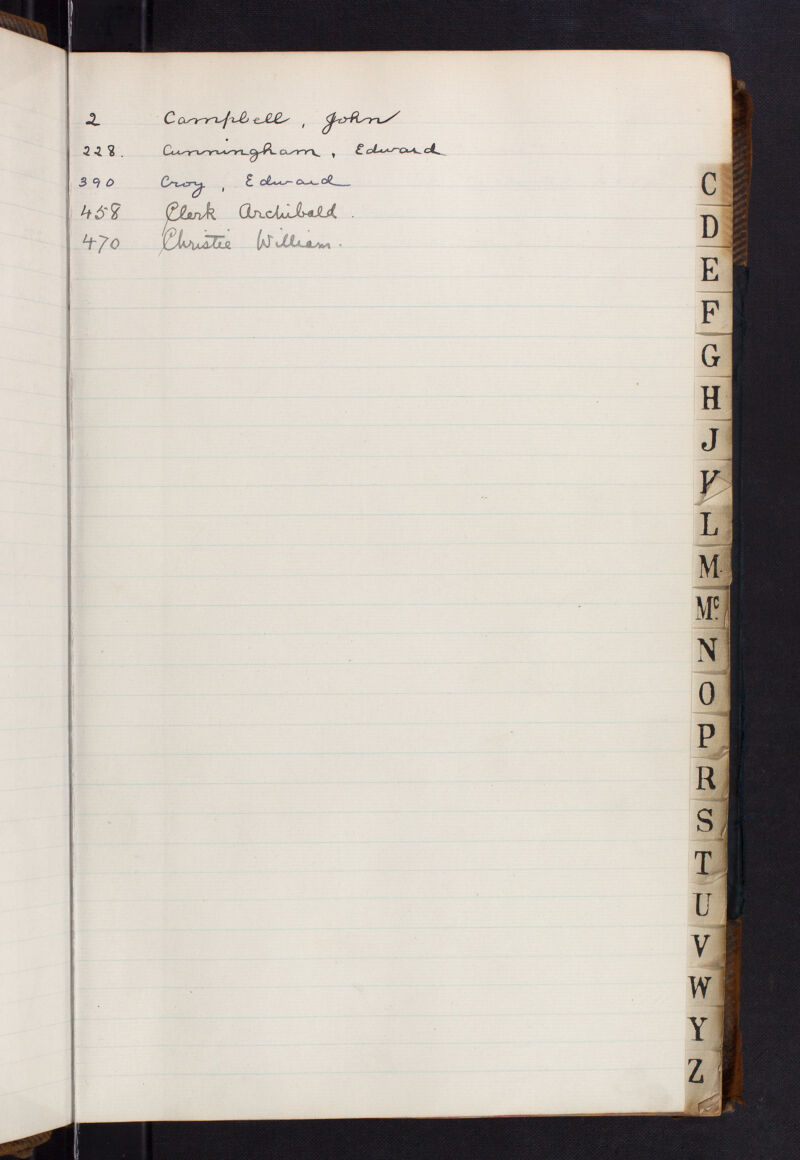 2 Campbell, John
228. Cunningham, Edward
390 Croy, Edward
458 Clerk Archibald.
470 Christie William.
C
D
E
F
G
H
J
K
L
M
Mc.
N
O
P
R
S
T
U
V
W
Y
Z